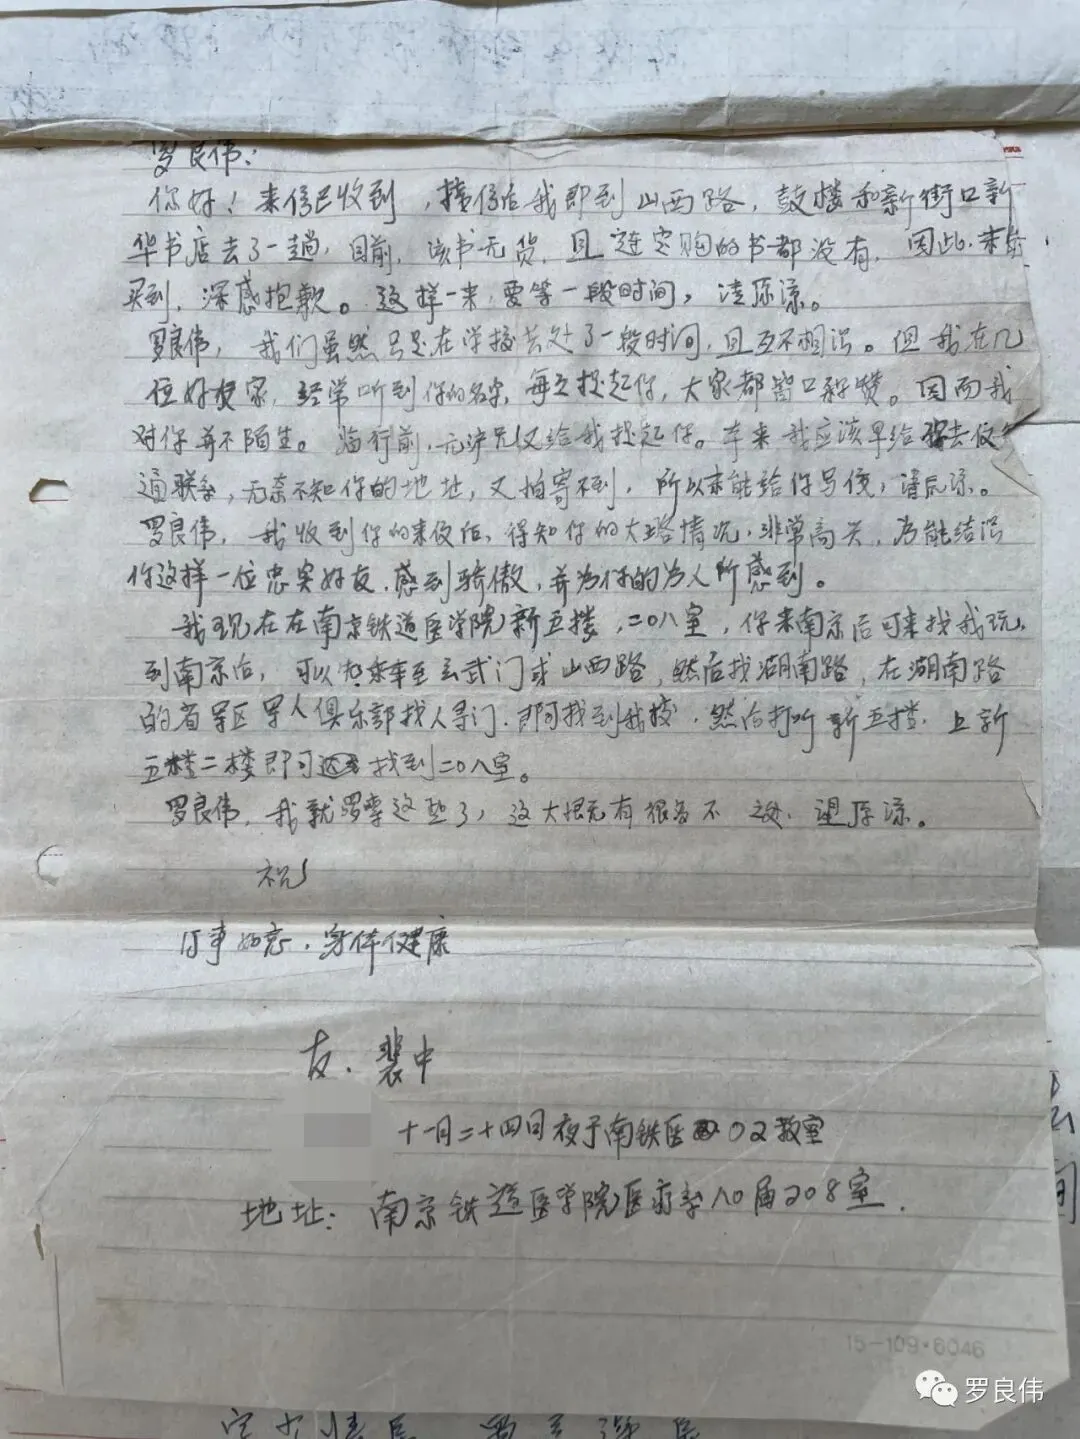 罗良伟：
你好！来信已收到，接信后我即到山西路，鼓楼和新街口新
华书店去了一趟，目前，该书无货，且连定购的书都没有，因此，未能
买到，深感抱歉。这样一来，要等一段时间，请原凉。
罗良伟，我们虽然只是在学校共处了一段时间，且互不相识。但我在几
位好友家，经常听到你的名字，每之提起你，大家都皆口称赞。因而我
对你并不陌生。临行前，元沪兄又给我提起你。本来我应该早给你去信
通联系，无奈不知你的地址，又怕寄不到，所以未能给你写信，请原凉。
罗良伟，我收到你的来信后，得知你的大略情况，非常高兴，为能结识
你这样一位忠实好友，感到骄傲，并为你的为人所感到。
我现在在南京铁道医学院新五楼，二〇八室，你来南京后可来找我玩，
到南京后，可以乘车至玄武门或山西路，然后找湖南路，在湖南路
的省军区军人俱乐部找人寻门，即可找到我校，然后打听新五楼，上新
五楼二楼即可找到二〇八室。
罗良伟，我就罗嗦这些了，这大概有很多不 之处，望原凉。
祝
万事如意，身体健康
友．裴中
十一月二十四日夜于南铁医 02教室
地址：南京铁道医学院医疗系八〇届208室．
15-109·6046
罗良伟